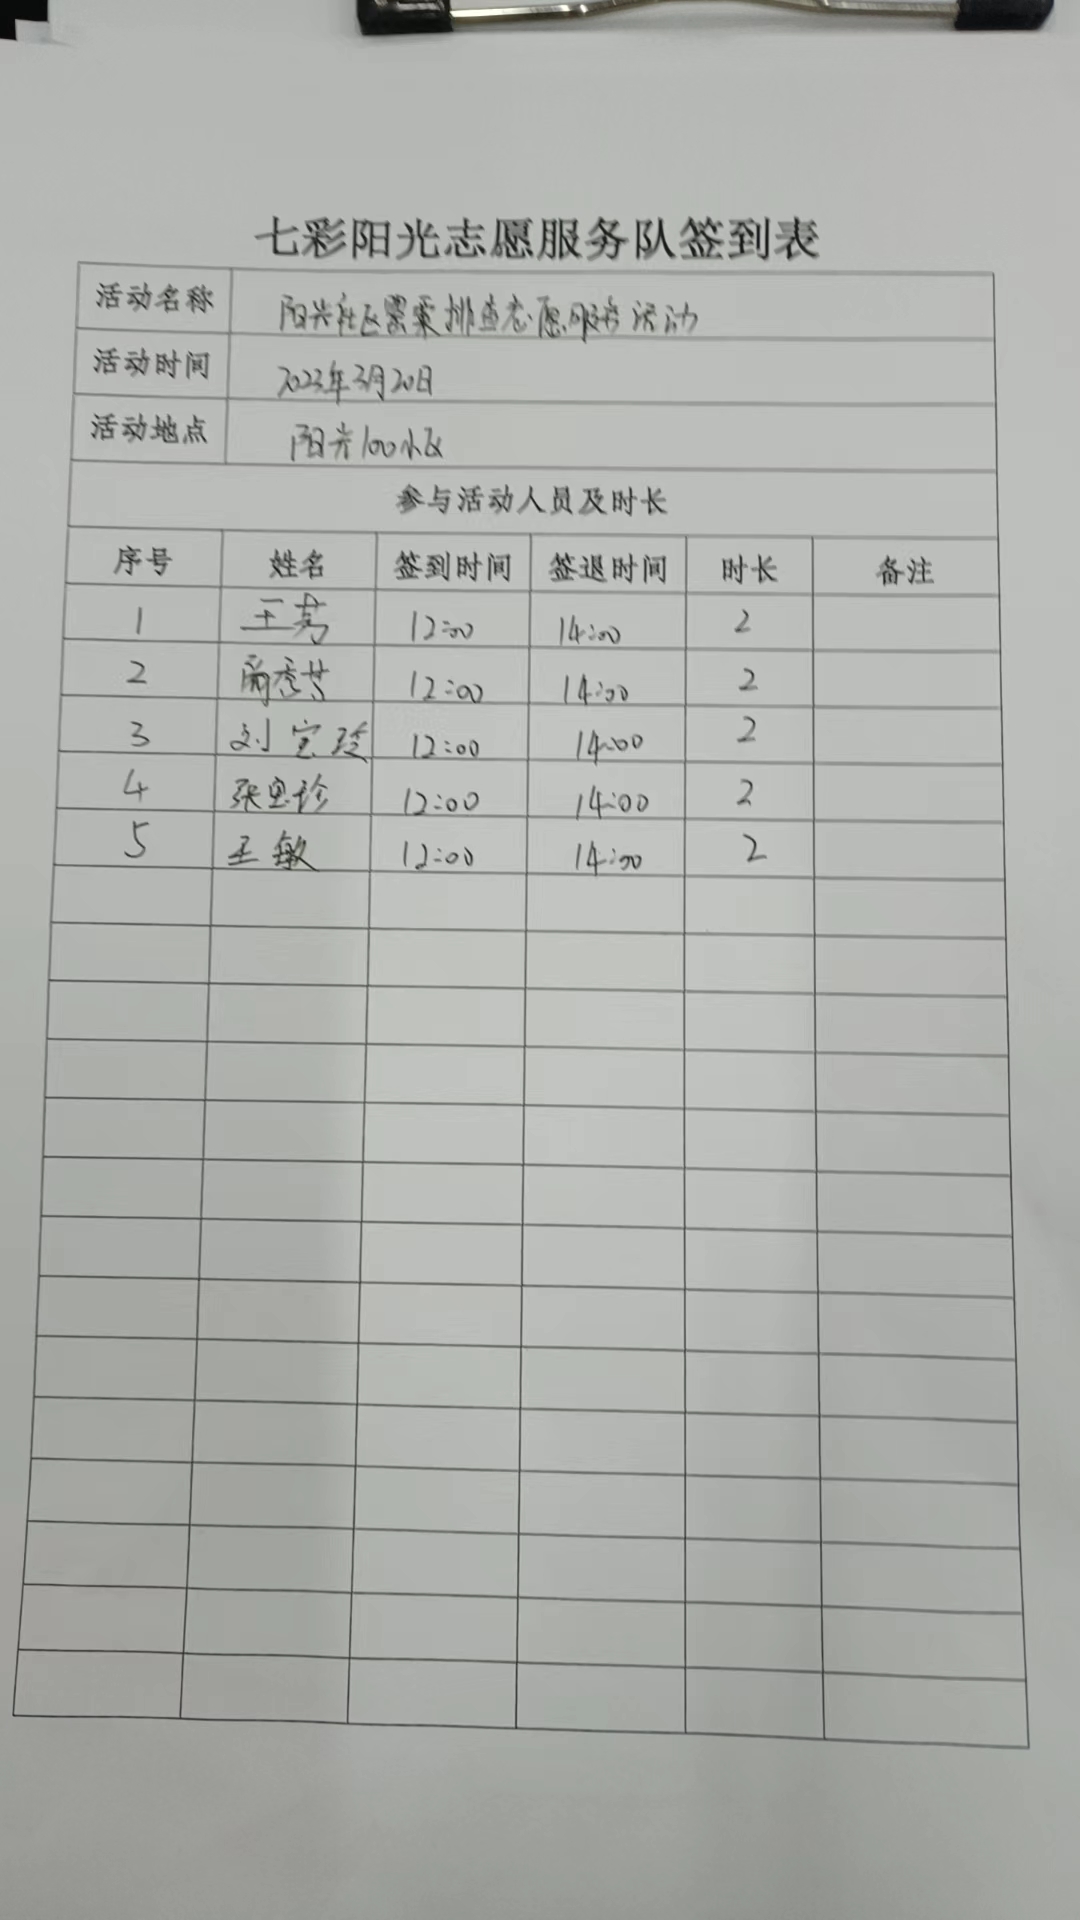 七彩阳光志愿服务队签到表
活动名称 阳光社区罂粟排查志愿服务活动
活动时间 2023年3月20日
活动地点 阳光100小区
参与活动人员及时长
序号 姓名 签到时间 签退时间 时长 备注
1 王 12:00 14:00 2
2 12:00 14:00 2
3 刘宝玲 12:00 14:00 2
4 张忠珍 12:00 14:00 2
5 王敏 12:00 14:00 2